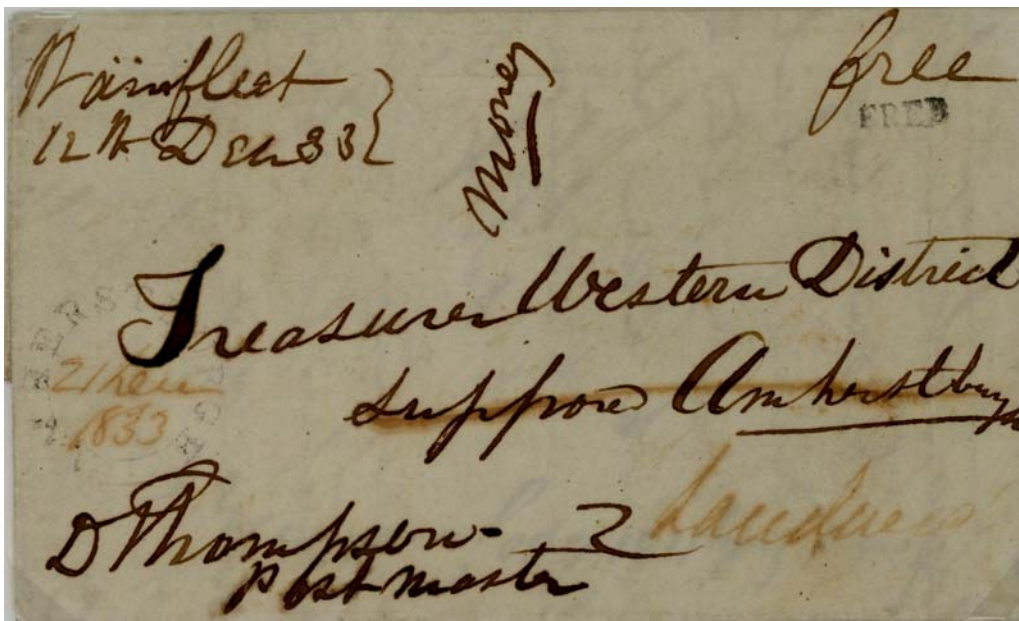 Wainfleet
12th Decr 33
Money
free
FREE
Treasurer Western District
suppose Amherstburgh
21 Decr
1833
D Thompson
Postmaster